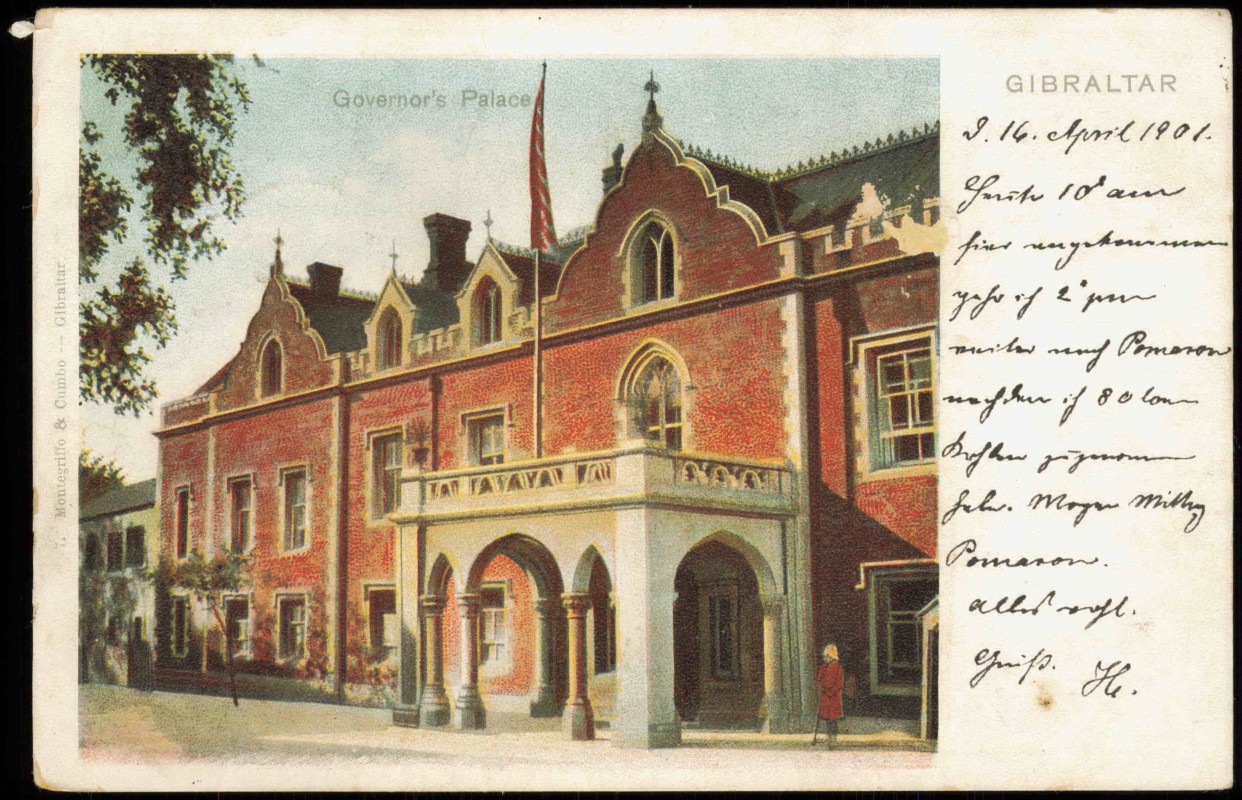 Governor's Palace
GIBRALTAR
D. 16. April 1901.
Heute 10h am
hier angekommen
gehe ich 2h pm
weiter nach Pomaron
nachdem ich 80 tons
Kohlen zugenommen
habe. Morgen Mittag
Pomaron.
Alles wohl.
Gruß. H.
7. Montegriffo & Cumbo — Gibraltar.